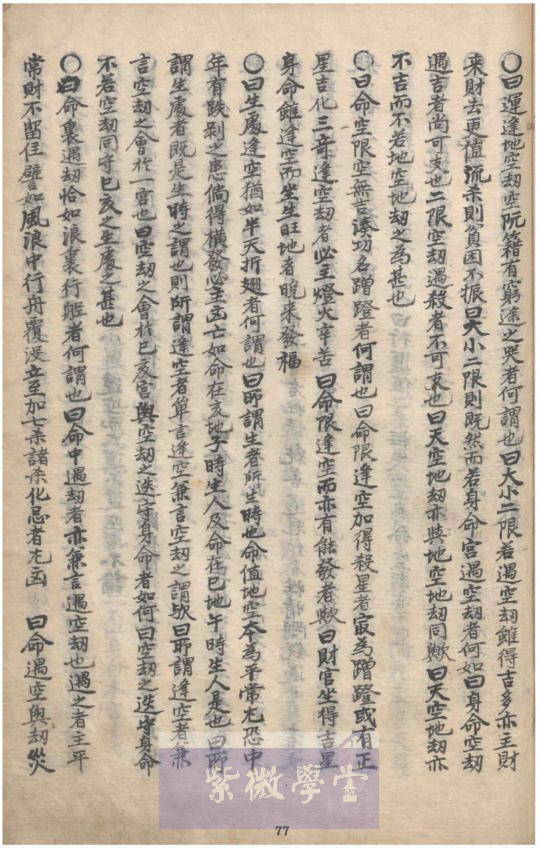 ○曰運逢地空劫空阮籍有窮途之哭者何謂也曰大小二限若遇空劫雖得吉多亦主財
來財去更值流杀則貧困不振曰大小二限則既然而若身命宮遇空劫者何如曰身命空劫
遇吉者尚可支也二限空劫遇殺者不可哀也曰天空地劫亦與地空地劫同歟曰天空地劫亦
不吉而不若地空地劫之為甚也
○曰命空限空無吉湊功名蹭蹬者何謂也曰命限逢空加得殺星者㝡為蹭蹬或有正
星吉化三奇逢空劫者必主燈火辛苦曰命限逢空而亦有能發者歟曰財官坐得吉星
身命雖逢空而坐生旺地者晚來發福
○曰生處逢空猶如半天折翅者何謂也曰所謂生者所生時也命值地空本為平常尤恐中
年有跌剥之患倘得橫發必主凶亡如命在亥地子時生人及命在巳地午時生人是也曰所
謂生處者既是生時之謂也則所謂逢空者單言逢空兼言空劫之謂歟曰所謂逢空者兼
言空劫之會於一宮也曰空劫之會於巳亥宮與空劫之迭守身命者如何曰空劫之迭守身命
不若空劫同守巳亥之生處之甚也
○曰命裏遇劫恰如浪裏行船者何謂也曰命中遇劫者亦兼言遇空劫也遇之者主平
常財不留住譬如風浪中行舟覆沒立至加七杀諸杀化忌者尤凶 曰命遇空與劫災
紫微學堂
77